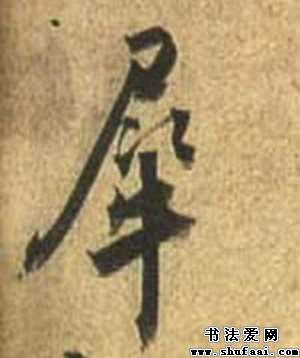 犀
书法爱网
www.shufaai.com